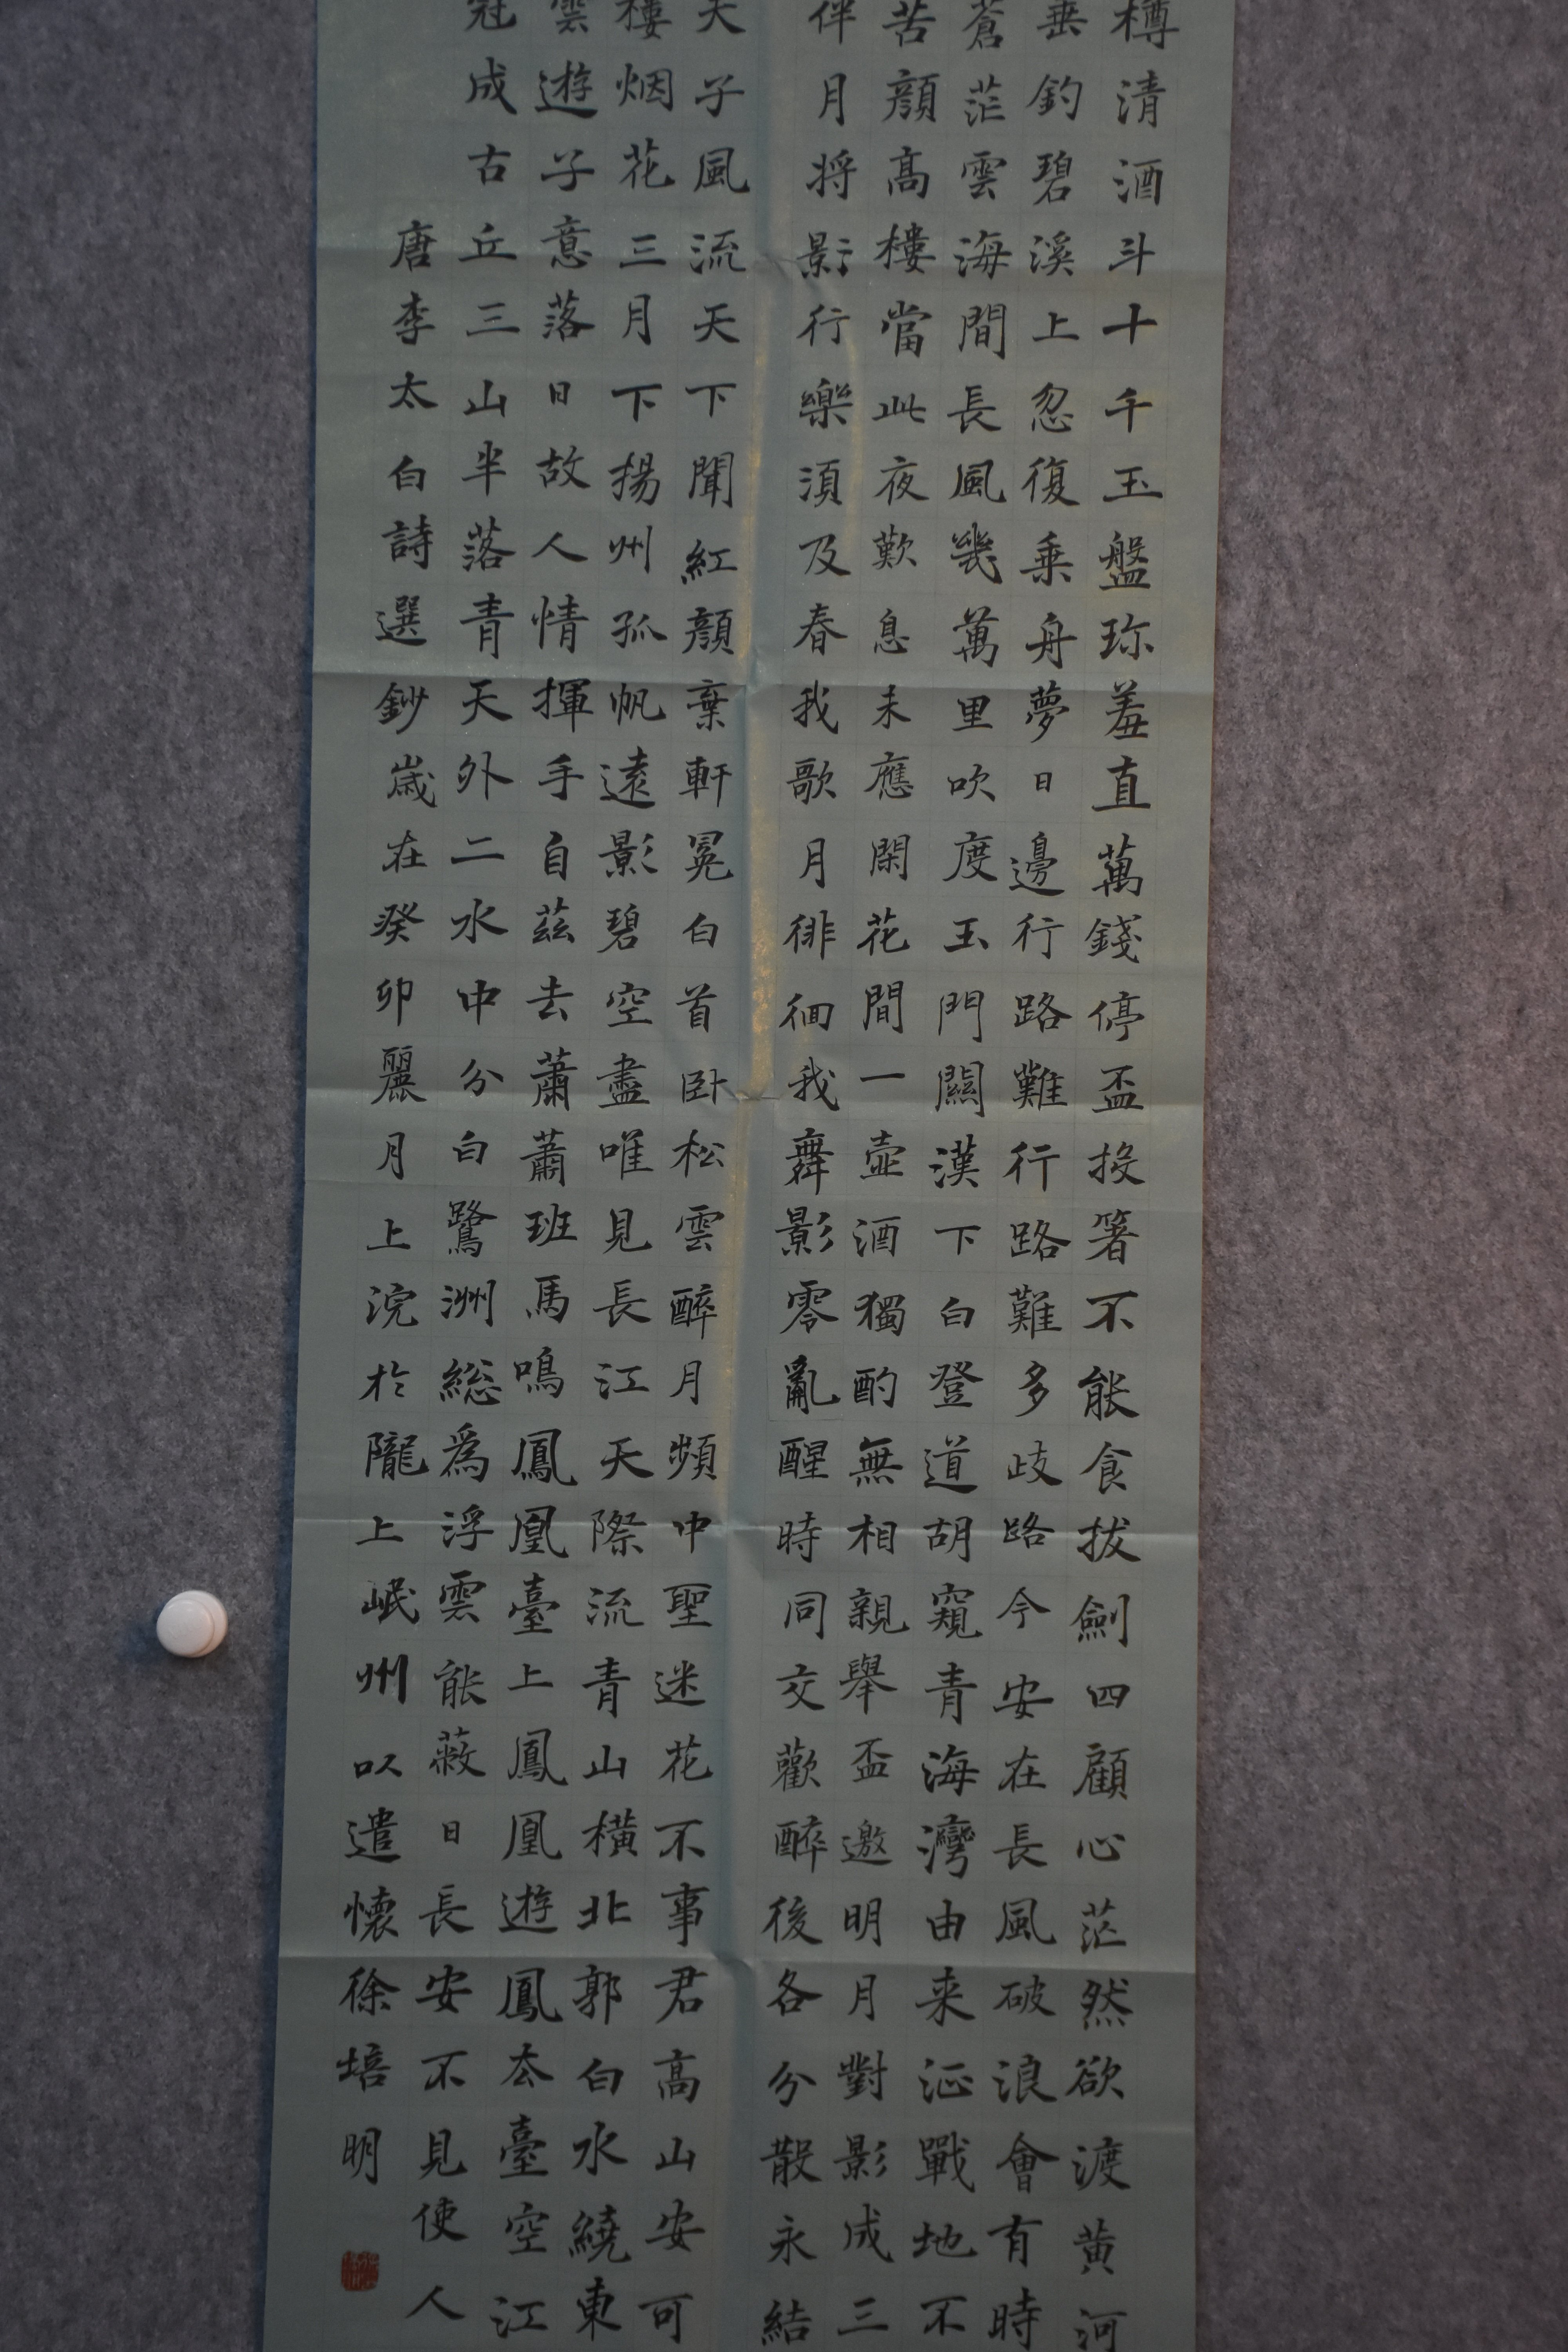 樽清酒斗十千玉盤珎羞直萬錢停盃投箸不能食拔劍四顧心茫然欲渡黄河
垂釣碧溪上忽復乗舟夢日邊行路難行路難多歧路今安在長風破浪會有時
蒼茫雲海間長風幾萬里吹度玉門關漢下白登道胡窺青海灣由来征戰地不
苦顔高樓當此夜歎息未應閑花間一壺酒獨酌無相親舉盃邀明月對影成三
伴月将影行樂須及春我歌月徘徊我舞影零亂醒時同交歡醉後各分散永結
天子風流天下聞紅顔棄軒冕白首卧松雲醉月頻中聖迷花不事君高山安可
樓烟花三月下揚州孤帆遠影碧空盡唯見長江天際流青山橫北郭白水繞東
雲遊子意落日故人情揮手自茲去蕭蕭班馬鳴鳳凰臺上鳳凰遊鳳去臺空江
冠成古丘三山半落青天外二水中分白鷺洲総為浮雲能蔽日長安不見使人
唐李太白詩選鈔歳在癸卯麗月上浣於隴上岷州以遣懐徐培明